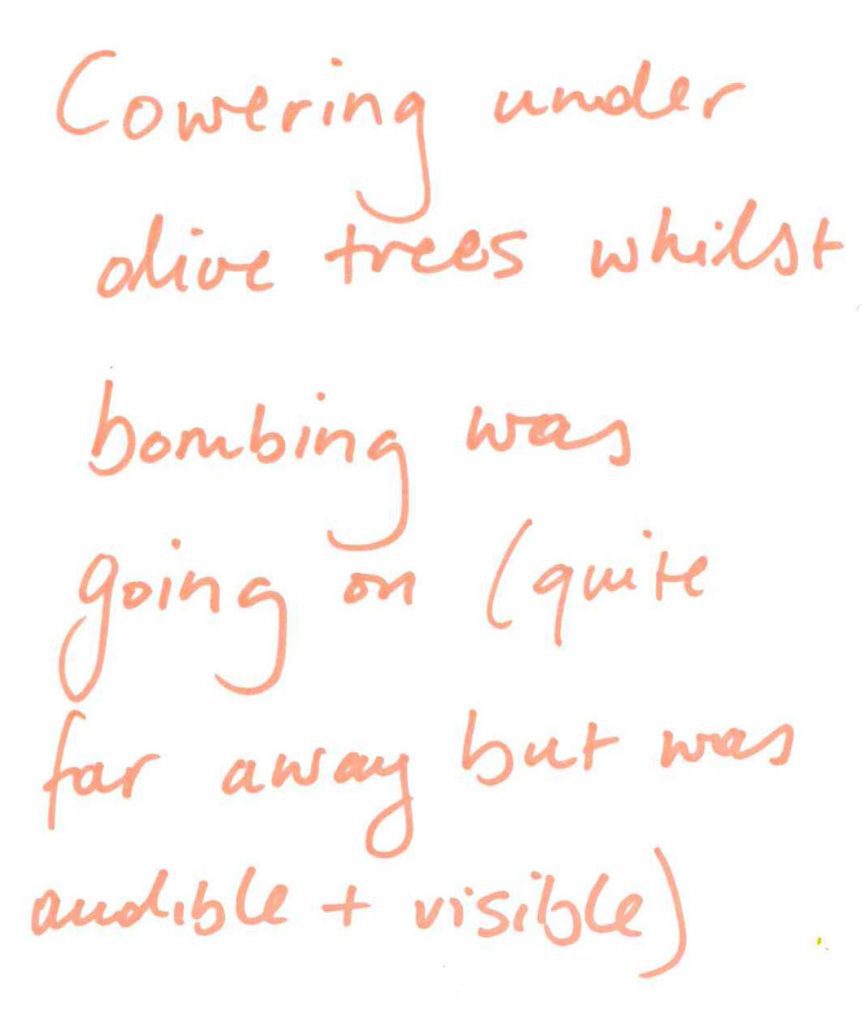 Cowering under
olive trees whilst
bombing was
going on (quite
far away but was
audible + visible)